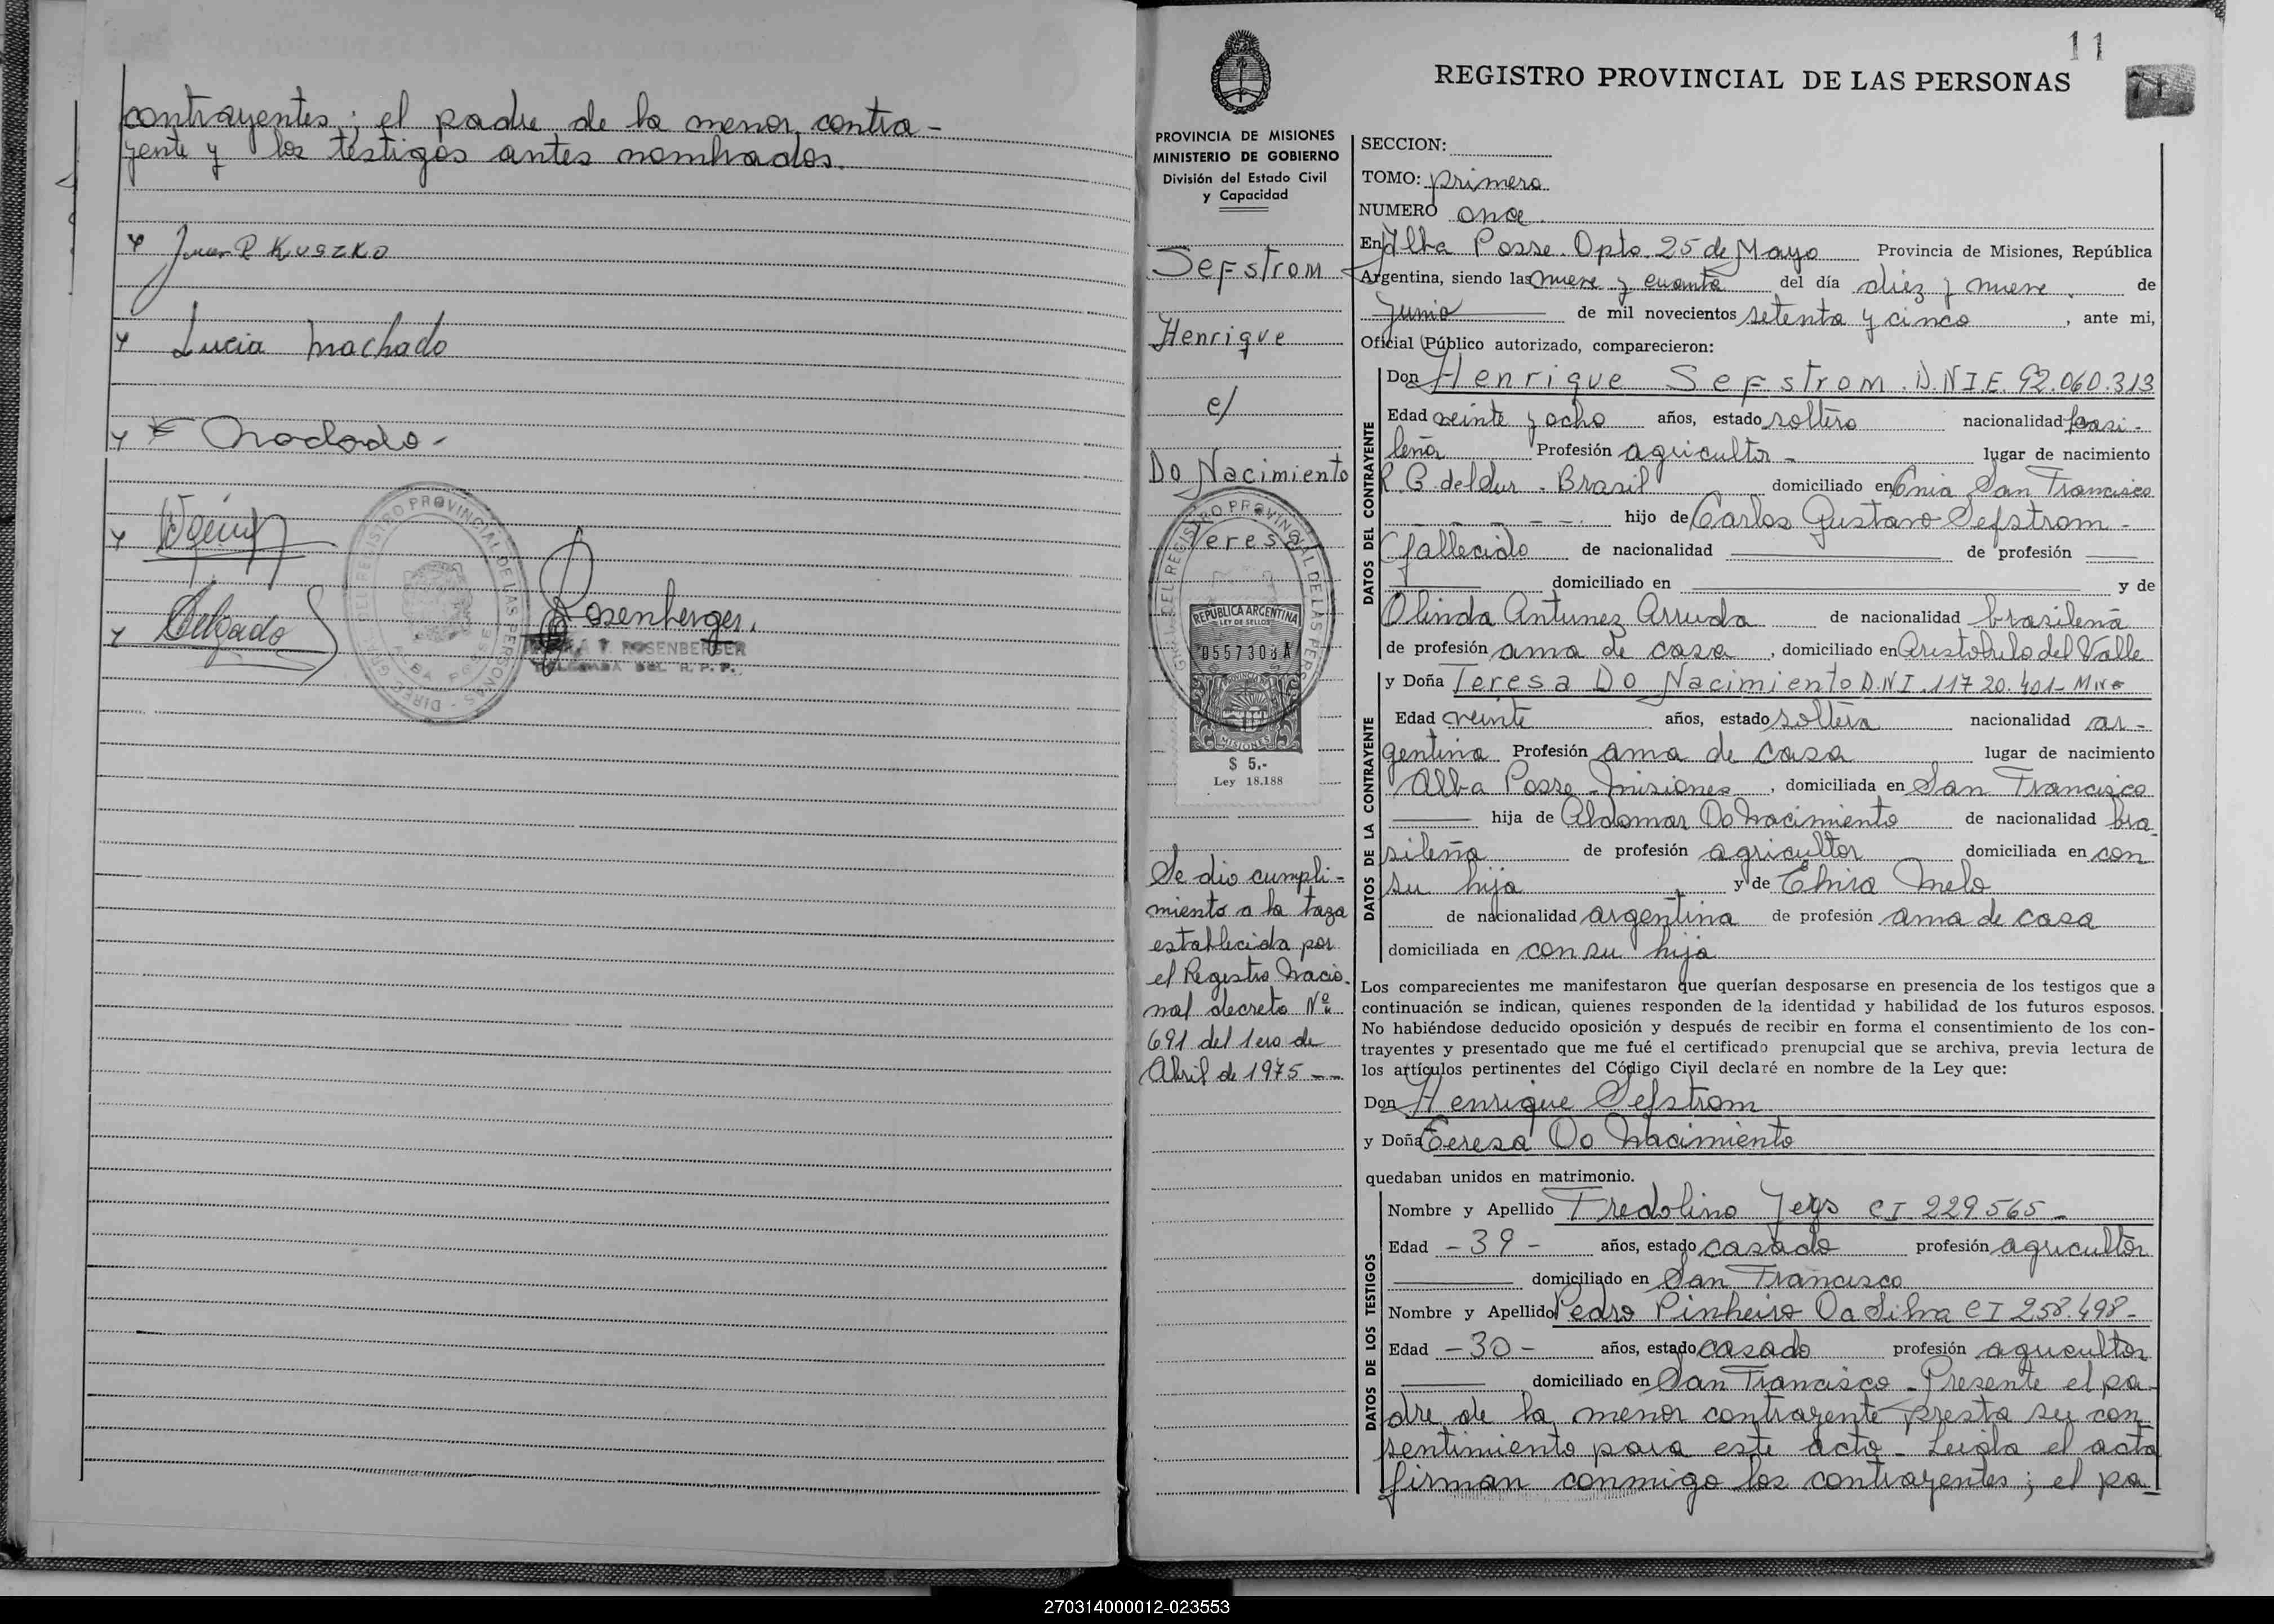 contrayentes; el padre de la menor contra-
yente y los testigos antes nombrados.
Juan R Kuszko
Lucia Machado
Delgado
Rosenberger.
ROSENBERGER
DEL R. P. P.
11
REGISTRO PROVINCIAL DE LAS PERSONAS
PROVINCIA DE MISIONES
MINISTERIO DE GOBIERNO
División del Estado Civil
y Capacidad
Sefstrom
Henrique
c/
Do Nacimiento
Teresa
REPUBLICA ARGENTINA
LEY DE SELLOS
MISIONES
$ 5.-
Ley 18.188
Se dio cumpli-
miento a la taza
establecida por
el Registro Nacio-
nal decreto Nº
691 del 1ero de
Abril de 1975 --
SECCION:
TOMO: primero
NUMERO once
En Alba Posse. Dpto. 25 de Mayo Provincia de Misiones, República
Argentina, siendo las nueve y cuarenta del día diez y nueve de
junio de mil novecientos setenta y cinco, ante mi,
Oficial Público autorizado, comparecieron:
DATOS DEL CONTRAYENTE
Don Henrique Sefstrom. D.N.I.E. 92.060.313
Edad veinte y ocho años, estado soltero nacionalidad brasi-
leña Profesión agricultor - lugar de nacimiento
R.G. del Sur - Brasil domiciliado en Cnia San Francisco
hijo de Carlos Gustavo Sefstrom -
(fallecido de nacionalidad de profesión
domiciliado en y de
Olinda Antunez Arruda de nacionalidad brasileña
de profesión ama de casa, domiciliado en Aristobulo del Valle
DATOS DE LA CONTRAYENTE
y Doña Teresa Do Nacimiento D.N.I. 117 20.401-
Edad veinte años, estado soltera nacionalidad ar-
gentina Profesión ama de casa lugar de nacimiento
Alba Posse - Misiones, domiciliada en San Francisco
hija de Aldomar Do Nacimiento de nacionalidad bra-
sileña de profesión agricultor domiciliada en con
su hija y de Elvira Melo
de nacionalidad argentina de profesión ama de casa
domiciliada en con su hija
Los comparecientes me manifestaron que querían desposarse en presencia de los testigos que a
continuación se indican, quienes responden de la identidad y habilidad de los futuros esposos.
No habiéndose deducido oposición y después de recibir en forma el consentimiento de los con-
trayentes y presentado que me fué el certificado prenupcial que se archiva, previa lectura de
los artículos pertinentes del Código Civil declaré en nombre de la Ley que:
Don Henrique Sefstrom
y Doña Teresa Do Nacimiento
quedaban unidos en matrimonio.
DATOS DE LOS TESTIGOS
Nombre y Apellido Fredolino Jeys CI 229.565-
Edad -39- años, estado casado profesión agricultor
domiciliado en San Francisco
Nombre y Apellido Pedro Pinheiro Da Silva CI 258.498-
Edad -30- años, estado casado profesión agricultor
domiciliado en San Francisco - Presente el pa-
dre de la menor contrayente presta su con
sentimiento para este acto - Leida el acta
firman conmigo los contrayentes; el pa-
270314000012-023553